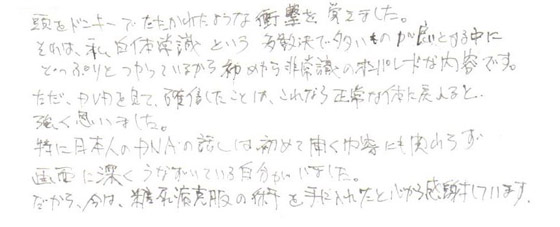 頭をドンキーでたたかれたような衝撃を覚えました。
それは、私自体常識という多数決で多いものが良とする中に
どっぷりとつかっているから初めから非常識のオンパレードな内容です。
ただ、DVDを見て、確信したことは、これなら正常な体に戻れると
強く思いました。
特に日本人のDNAの話しは初めて聞く内容にも関わらず
画面に深くうなずいている自分がいました。
だから、今は、糖尿病克服の術を手に入れたと心から感謝しています。